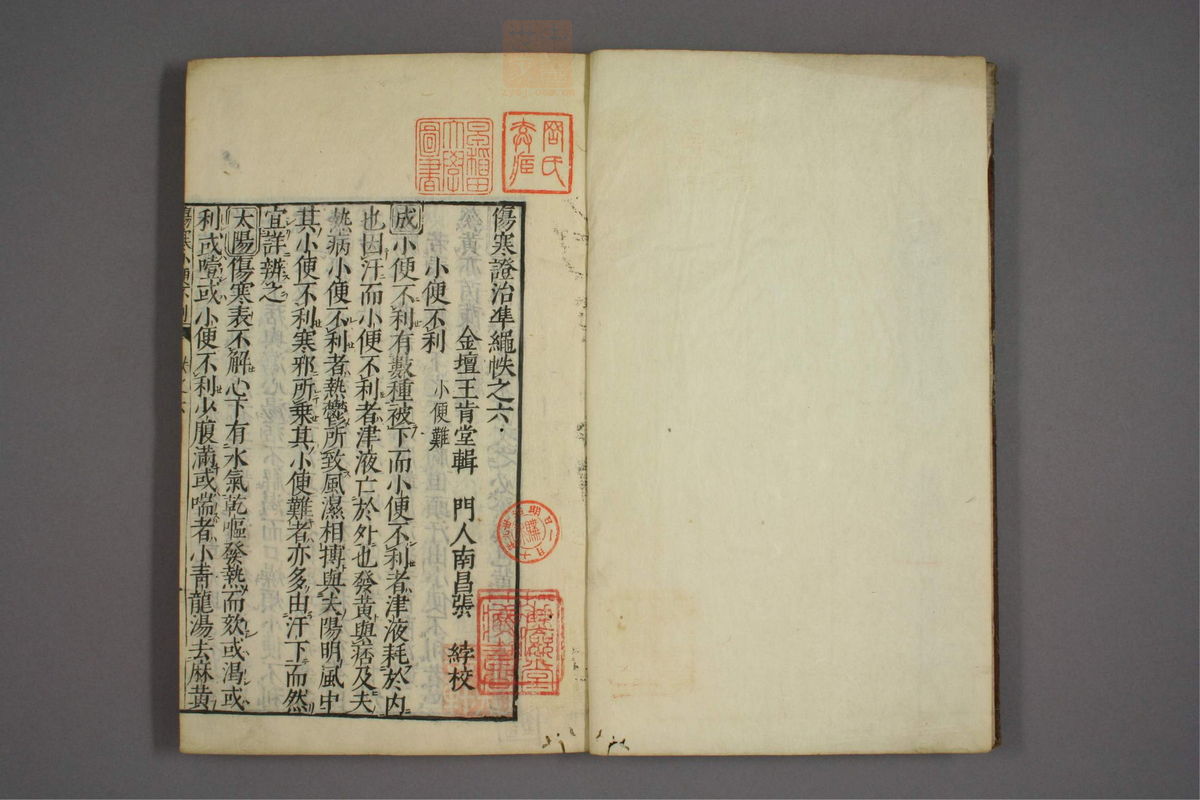 傷寒證治準繩帙之六
金壇王肯堂輯 門人南昌張 綍校
小便不利 小便難
成小便不利有數種被下而小便不利者津液耗於内
也因汗而小便不利者津液亡於外也發黄與痞及夫
熱病小便不利者熱鬱所致風濕相摶與夫陽明風中
其小便不利寒邪所乗其小便難者亦多由汗下而然
宜詳辨之
太陽傷寒表不解心下有水氣乾嘔發熱而欬或渴或
利或噎或小便不利少腹滿或喘者小青龍湯去麻黄
傷寒小便不利
早稻田大學圖書